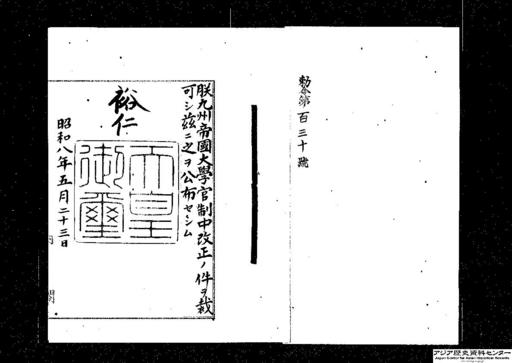 勅令第百三十號
朕九州帝國大學官制中改正ノ件ヲ裁
可シ茲ニ之ヲ公布セシム
裕仁
天皇御璽
昭和八年五月二十三日
アジア歴史資料センター
Japan Center for Asian Historical Records